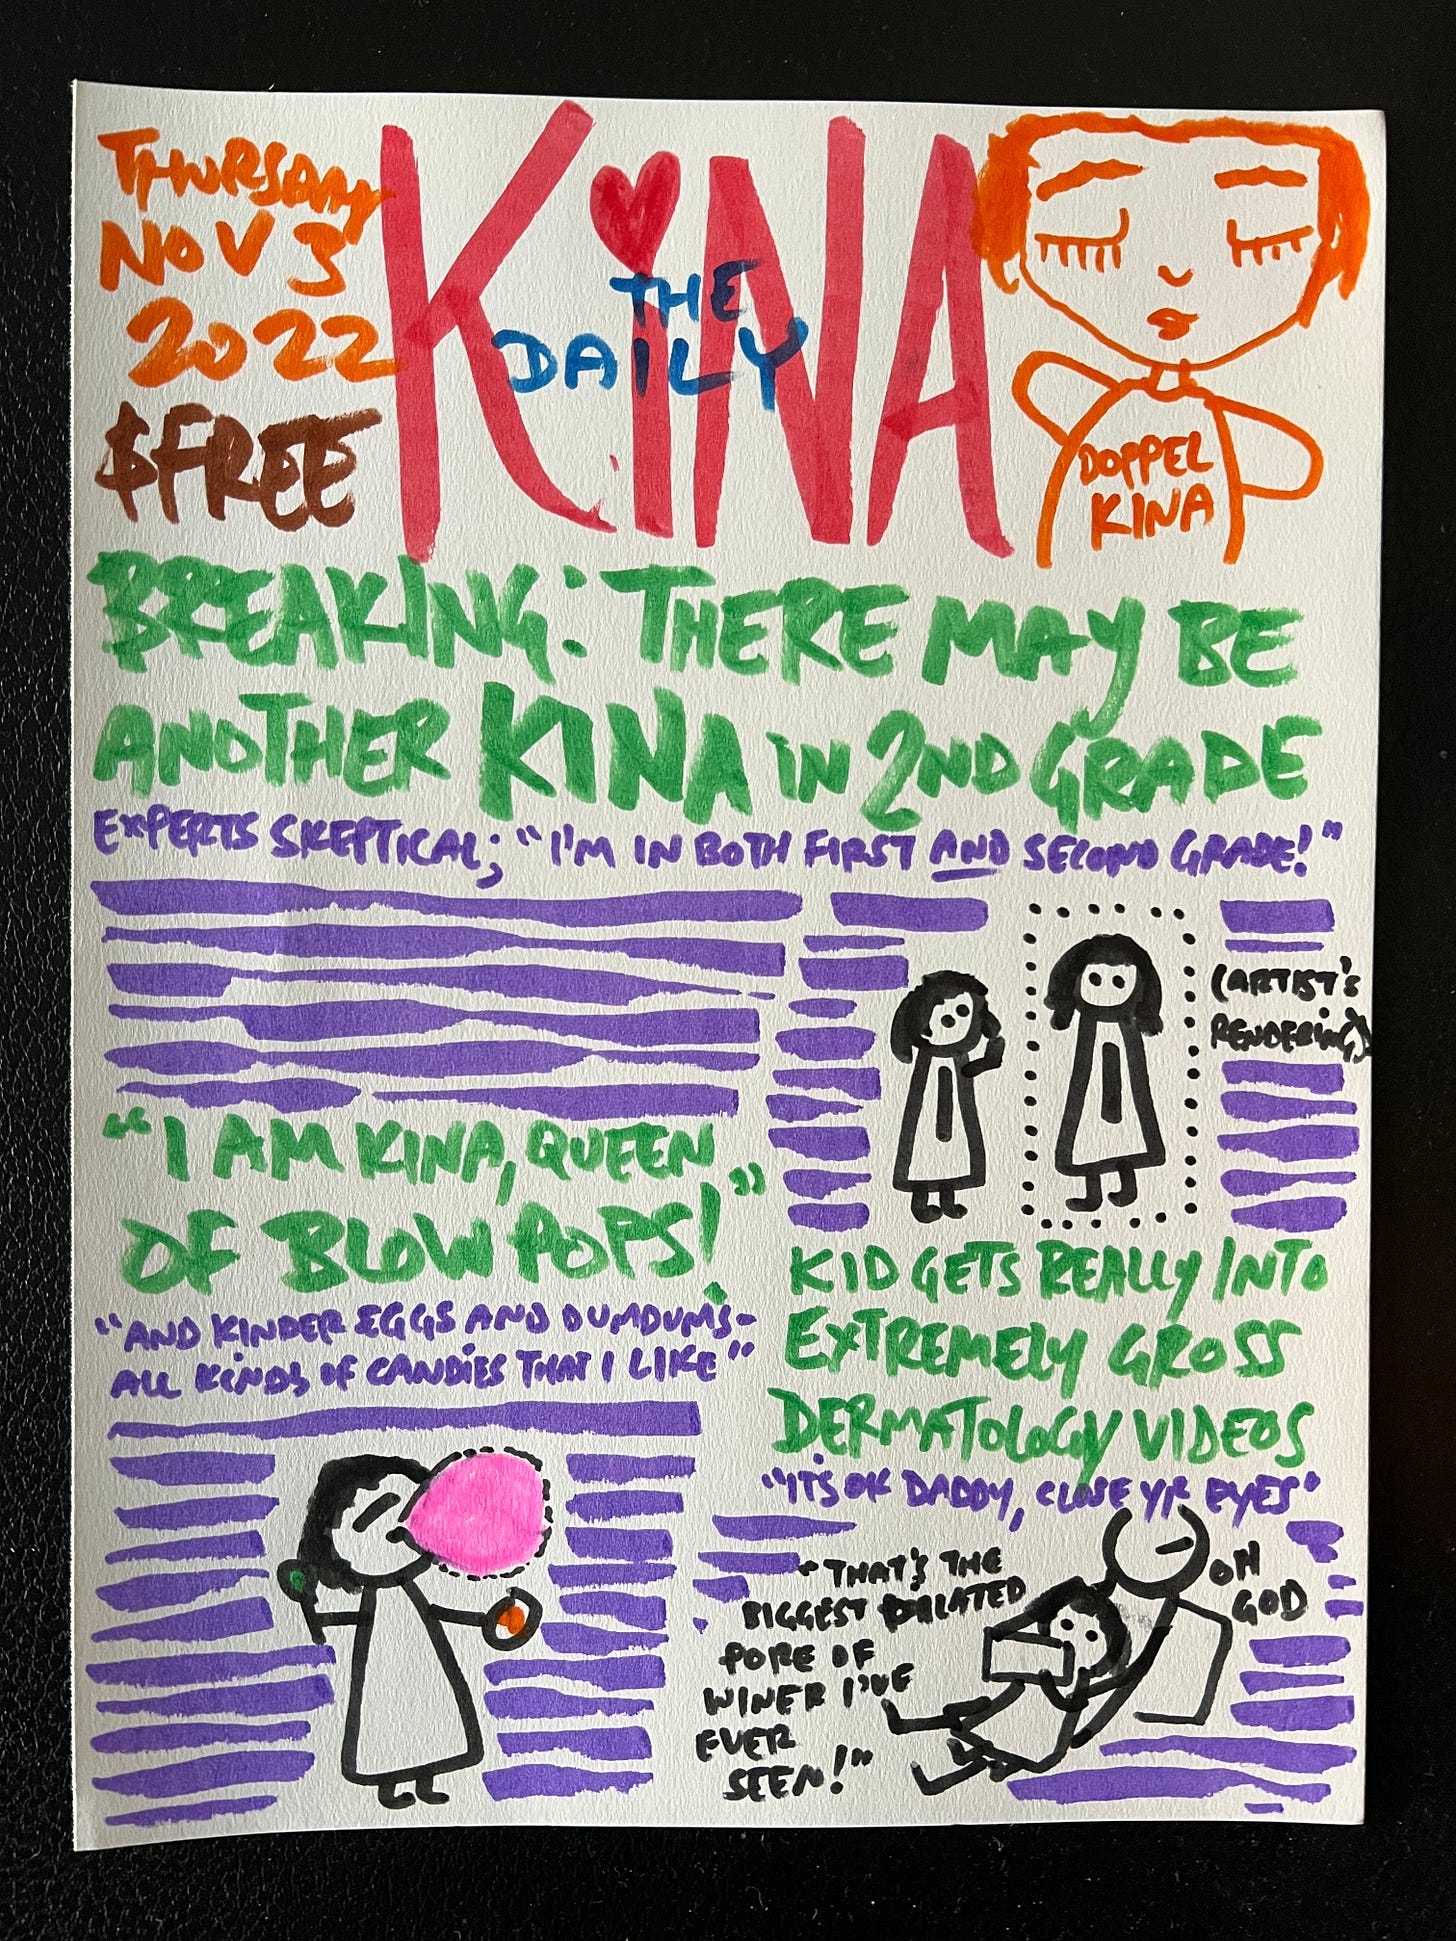 THURSDAY
NOV 3
2022
$FREE
THE
DAILY
KiNA
DOPPEL
KINA
BREAKING: THERE MAY BE
ANOTHER KINA IN 2ND GRADE
EXPERTS SKEPTICAL; "I'M IN BOTH FIRST AND SECOND GRADE!"
(ARTIST'S
RENDERING)
"I AM KINA, QUEEN
OF BLOW POPS!"
"AND KINDER EGGS AND DUMDUMS-
ALL KINDS OF CANDIES THAT I LIKE"
KID GETS REALLY INTO
EXTREMELY GROSS
DERMATOLOGY VIDEOS
"IT'S OK DADDY, CLOSE YR EYES"
"THAT'S THE
BIGGEST DILATED
PORE OF
WINER I'VE
EVER
SEEN!"
OH
GOD